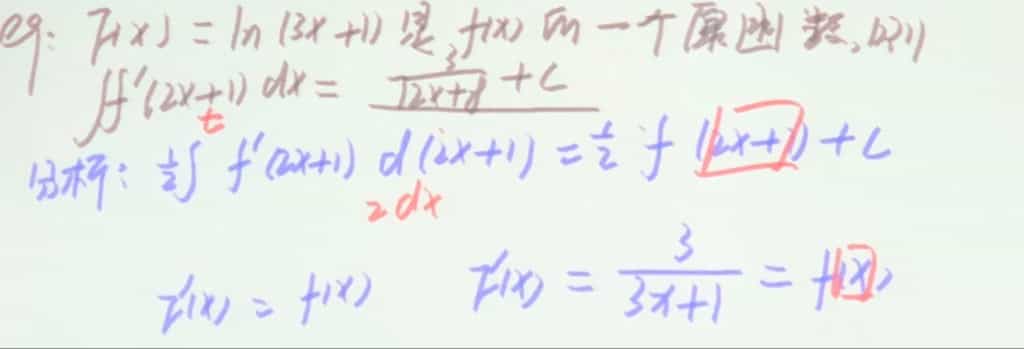 eg: F(x) = ln(3x+1) 是 f(x) 的一个原函数, 则
∫f'(2x+1) dx = 3/(12x+8) + C
t
分析: 1/2 ∫ f'(2x+1) d(2x+1) = 1/2 f(2x+1) + C
2dx
F'(x) = f(x) F'(x) = 3/(3x+1) = f(x)